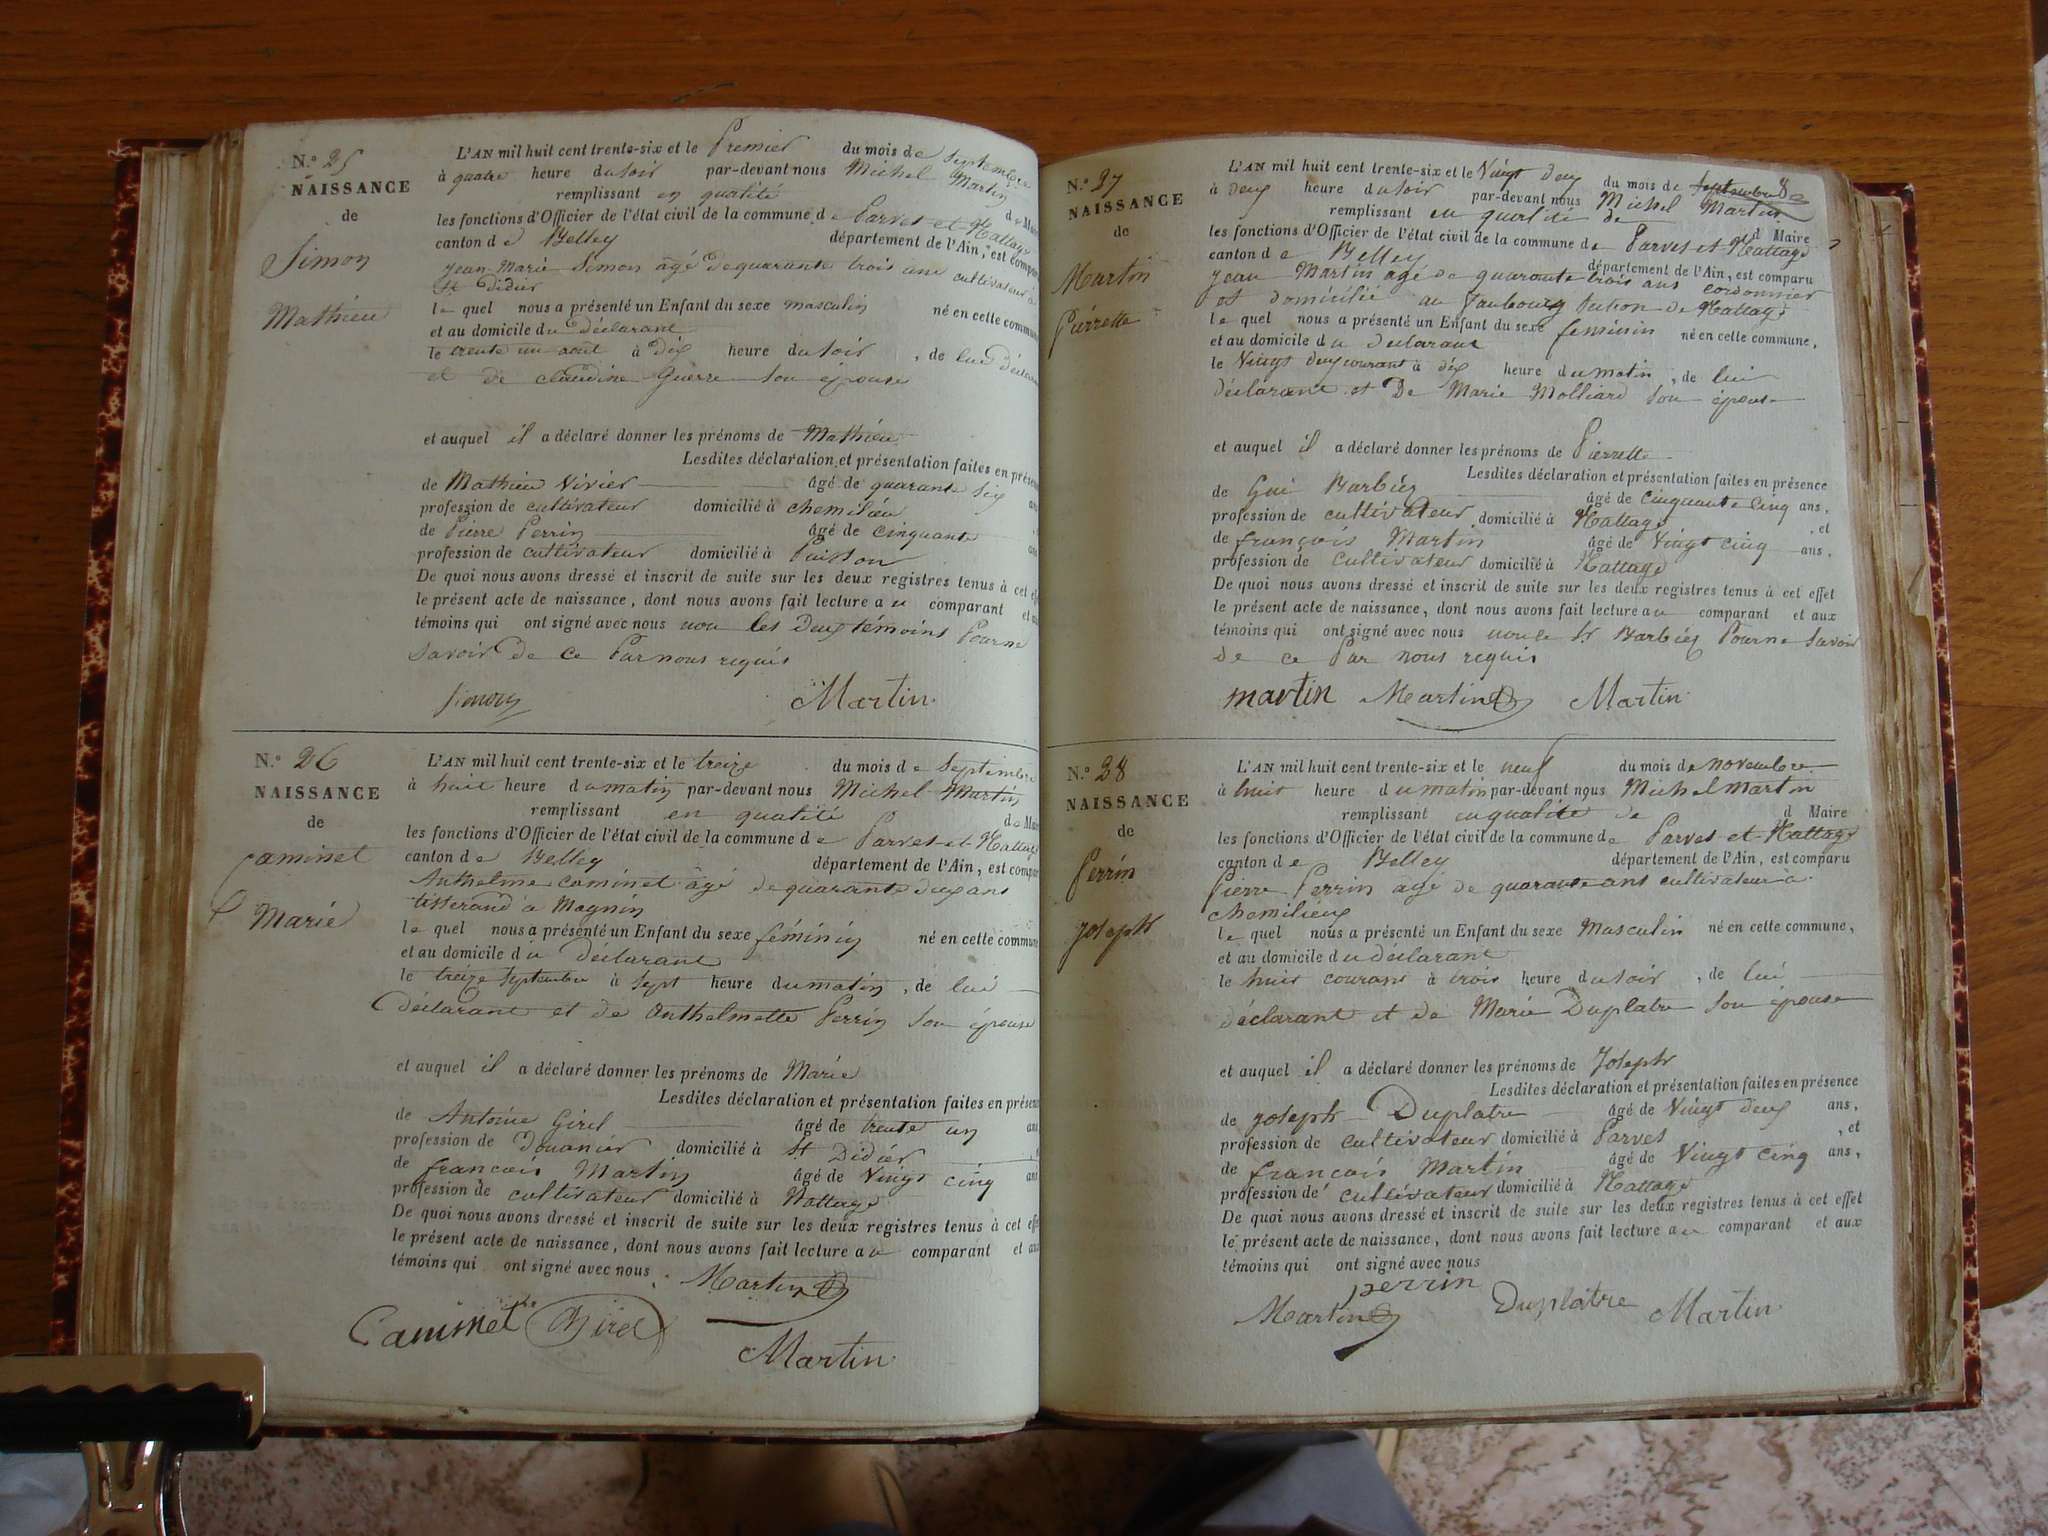 N.° 25
NAISSANCE
de
Simon
Mathieu
L'AN mil huit cent trente-six et le Premier du mois de Septembre
à quatre heure du soir par-devant nous Michel Martin
remplissant en qualité de Mai
les fonctions d'Officier de l'état civil de la commune de Parves et Nattage
canton de Belley département de l'Ain, est compar
Jean Marie Simon agé de quarante trois ans cultivateur à
St Didier
le quel nous a présenté un Enfant du sexe masculin né en cette commune
et au domicile du déclarant
le trente un aout à dix heure du soir, de lui Déclarant
et de claudine Guerre son épouse
et auquel il a déclaré donner les prénoms de Mathieu
Lesdites déclaration et présentation faites en présence
de Mathieu Vivier âgé de quarante six ans
profession de cultivateur domicilié à chemilieu
de Pierre Perrin âgé de cinquante ans
profession de cultivateur domicilié à
De quoi nous avons dressé et inscrit de suite sur les deux registres tenus à cet effet
le présent acte de naissance, dont nous avons fait lecture au comparant et aux
témoins qui ont signé avec nous non les deux témoins Pour ne
savoir de ce Par nous requis
Simon Martin
N.° 26
NAISSANCE
de
Caminet
Marie
L'AN mil huit cent trente-six et le treize du mois de Septembre
à huit heure du matin par-devant nous Michel Martin
remplissant en qualité de Mai
les fonctions d'Officier de l'état civil de la commune de Parves et Nattage
canton de Belley département de l'Ain, est compar
Anthelme Caminet agé de quarante deux ans
tisserand à Magnin
le quel nous a présenté un Enfant du sexe féminin né en cette commune
et au domicile du Déclarant
le treize Septembre à Sept heure du matin, de lui
Déclarant et de Anthelmette Perrin son épouse
et auquel il a déclaré donner les prénoms de Marie
Lesdites déclaration et présentation faites en présence
de Antoine Girel âgé de trente un ans
profession de Douanier domicilié à St Didier
de françois Martin âgé de Vingt cinq ans
profession de cultivateur domicilié à Nattage
De quoi nous avons dressé et inscrit de suite sur les deux registres tenus à cet effet
le présent acte de naissance, dont nous avons fait lecture au comparant et aux
témoins qui ont signé avec nous. Martin
Caminet Girel
Martin
N.° 27
NAISSANCE
de
Martin
Pierrette
L'AN mil huit cent trente-six et le Vingt deux du mois de Septembre 8bre
à deux heure du soir par-devant nous Michel Martin
remplissant en qualité de d Maire
les fonctions d'Officier de l'état civil de la commune de Parves et Nattage
canton de Belley département de l'Ain, est comparu
Jean Martin agé de quarante trois ans cordonnier
et domicilié au faubourg section de Nattage
le quel nous a présenté un Enfant du sexe féminin né en cette commune,
et au domicile du déclarant
le Vingt deux courant à dix heure du matin, de lui
déclarant et De Marie Molliard son épouse
et auquel il a déclaré donner les prénoms de Pierrette
Lesdites déclaration et présentation faites en présence
de Gui Barbiez âgé de cinquante cinq ans,
profession de cultivateur domicilié à Nattage, et
de françois Martin âgé de Vingt cinq ans,
profession de cultivateur domicilié à Nattage
De quoi nous avons dressé et inscrit de suite sur les deux registres tenus à cet effet
le présent acte de naissance, dont nous avons fait lecture au comparant et aux
témoins qui ont signé avec nous non le Sr Barbiez Pour ne savoir
de ce Par nous requis
martin Martin Martin
N.° 28
NAISSANCE
de
Perrin
Joseph
L'AN mil huit cent trente-six et le neuf du mois de novembre
à huit heure du matin par-devant nous Michel Martin
remplissant en qualité de d Maire
les fonctions d'Officier de l'état civil de la commune de Parves et Nattage
canton de Belley département de l'Ain, est comparu
Pierre Perrin agé de quarante ans cultivateur à
chemilieu
le quel nous a présenté un Enfant du sexe Masculin né en cette commune,
et au domicile du déclarant
le huit courant à trois heure du soir, de lui
déclarant et de Marie Duplatre son épouse
et auquel il a déclaré donner les prénoms de Joseph
Lesdites déclaration et présentation faites en présence
de Joseph Duplatre âgé de Vingt deux ans,
profession de cultivateur domicilié à Parves, et
de françois Martin âgé de Vingt cinq ans,
profession de cultivateur domicilié à Nattage
De quoi nous avons dressé et inscrit de suite sur les deux registres tenus à cet effet
le présent acte de naissance, dont nous avons fait lecture au comparant et aux
témoins qui ont signé avec nous
perrin
Martin Duplatre Martin